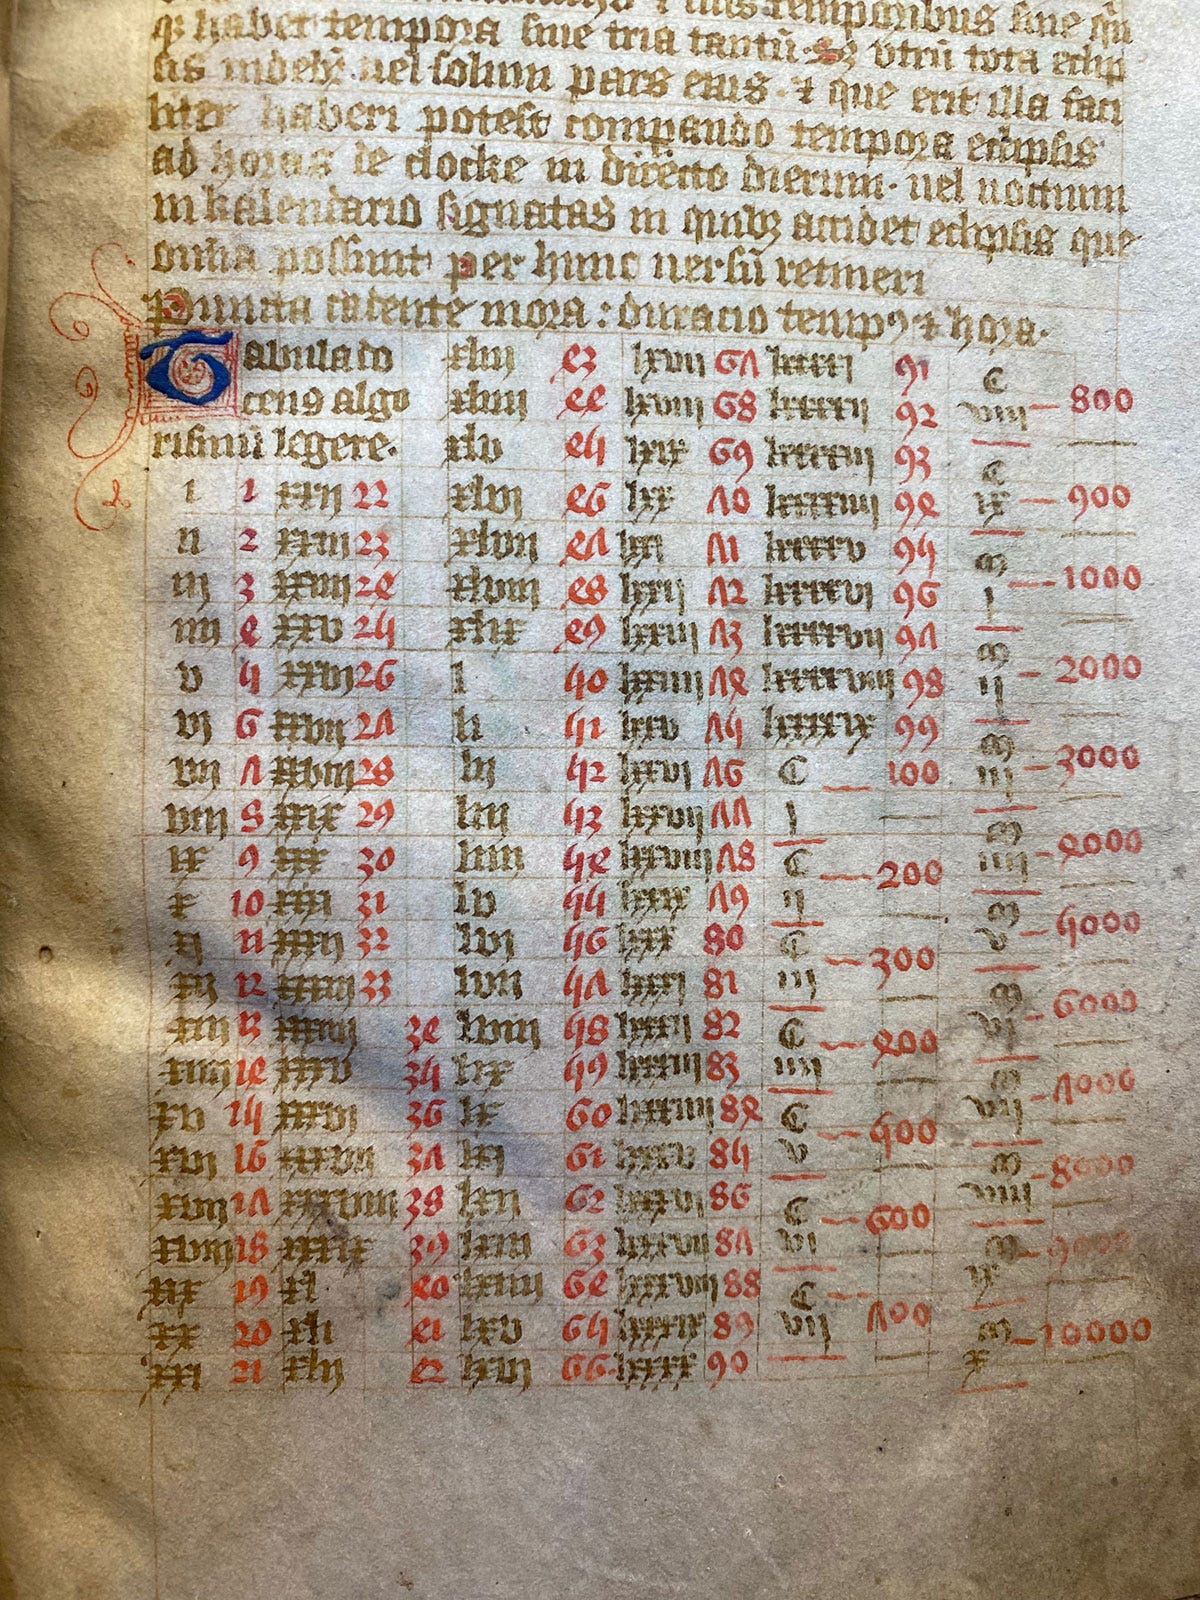 temporibus siue
habet tempora siue tria tantũ. Sz vtrũ tota eclip
sis uel solum pars eius. & que erit illa faci
liter haberi potest comparando tempora eclipsis
ad horas de clocke in directo dierum. uel noctium
in kalendario signatas in quibz accidet eclipsis que
omĩa possunt per hunc uersũ retineri
Puncta cadente mora : duracio temp9 & hora.
Tabula do xliii 43 lxvii 67 lxxxxi 91 C
cens algo xliiii 44 lxviii 68 lxxxxii 92 viii 800
rismũ legere. xlv 45 lxix 69 lxxxxiii 93 C
i 1 xxii 22 xlvi 46 lxx 70 lxxxxiiii 94 ix 900
ii 2 xxiii 23 xlvii 47 lxxi 71 lxxxxv 95 M
iii 3 xxiiii 24 xlviii 48 lxxii 72 lxxxxvi 96 i 1000
iiii 4 xxv 25 xlix 49 lxxiii 73 lxxxxvii 97 M
v 5 xxvi 26 l 50 lxxiiii 74 lxxxxviii 98 ii 2000
vi 6 xxvii 27 li 51 lxxv 75 lxxxxix 99 M
vii 7 xxviii 28 lii 52 lxxvi 76 C 100 iii 3000
viii 8 xxix 29 liii 53 lxxvii 77 i M
ix 9 xxx 30 liiii 54 lxxviii 78 C 200 iiii 4000
x 10 xxxi 31 lv 55 lxxix 79 ii M
xi 11 xxxii 32 lvi 56 lxxx 80 C 300 v 5000
xii 12 xxxiii 33 lvii 57 lxxxi 81 iii M
xiii 13 xxxiiii 34 lviii 58 lxxxii 82 C 400 vi 6000
xiiii 14 xxxv 35 lix 59 lxxxiii 83 iiii M
xv 15 xxxvi 36 lx 60 lxxxiiii 84 C 500 vii 7000
xvi 16 xxxvii 37 lxi 61 lxxxv 85 v M 8000
xvii 17 xxxviii 38 lxii 62 lxxxvi 86 C 600 viii
xviii 18 xxxix 39 lxiii 63 lxxxvii 87 vi M 9000
xix 19 xl 40 lxiiii 64 lxxxviii 88 C 700 ix
xx 20 xli 41 lxv 65 lxxxix 89 vii M 10000
xxi 21 xlii 42 lxvi 66 lxxxx 90 x